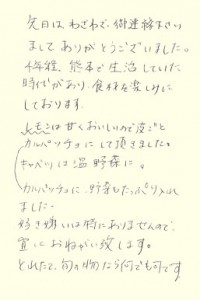 先日は、わざわざ、御連絡下さい
ましてありがとうございました。
時代があり、食材を楽しみに
しております。
レモンは甘くおいしいので皮ごと
カルパッチョにして頂きました。
キャベツは温野菜に。
カルパッチョに、野菜もたっぷり入れ
ました。
好き嫌いは特にありませんので、
宜しくおねがい致します。
とれたて、旬の物なら何でも可です